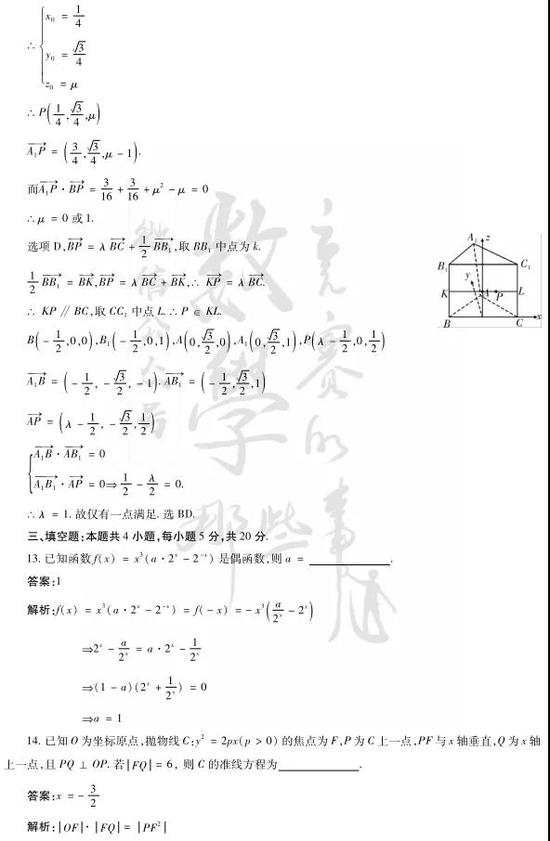 ∴ { x₀ = 1/4
y₀ = √3/4
z₀ = μ
∴ P(1/4, √3/4, μ)
A₁P→ = (3/4, √3/4, μ − 1).
而A₁P→ · BP→ = 3/16 + 3/16 + μ² − μ = 0
∴ μ = 0 或 1.
选项 D, BP→ = λ BC→ + 1/2 BB₁→, 取 BB₁ 中点为 k.
1/2 BB₁→ = BK→, BP→ = λ BC→ + BK→, ∴ KP→ = λ BC→.
∴ KP ∥ BC, 取 CC₁ 中点 L. ∴ P ∈ KL.
B(−1/2, 0, 0), B₁(−1/2, 0, 1), A(0, √3/2, 0), A₁(0, √3/2, 1), P(λ − 1/2, 0, 1/2)
A₁B→ = (−1/2, −√3/2, −1). AB₁→ = (−1/2, √3/2, 1)
AP→ = (λ − 1/2, −√3/2, 1/2)
{ A₁B→ · AB₁→ = 0
A₁B₁→ · AP→ = 0 ⇒ 1/2 − λ/2 = 0.
∴ λ = 1. 故仅有一点满足. 选 BD.
三、填空题:本题共 4 小题,每小题 5 分,共 20 分.
13. 已知函数 f(x) = x³(a · 2ˣ − 2⁻ˣ) 是偶函数,则 a = ________.
答案:1
解析:f(x) = x³(a · 2ˣ − 2⁻ˣ) = f(−x) = −x³(a/2ˣ − 2ˣ)
⇒2ˣ − a/2ˣ = a · 2ˣ − 1/2ˣ
⇒(1 − a)(2ˣ + 1/2ˣ) = 0
⇒a = 1
14. 已知 O 为坐标原点,抛物线 C:y² = 2px(p > 0) 的焦点为 F,P 为 C 上一点,PF 与 x 轴垂直,Q 为 x 轴
上一点,且 PQ ⊥ OP. 若|FQ| = 6, 则 C 的准线方程为________.
答案:x = −3/2
解析:|OF| · |FQ| = |PF²|
A₁ z
B₁ C₁
y
K A P L
B C x
数学
竞赛的
那些事